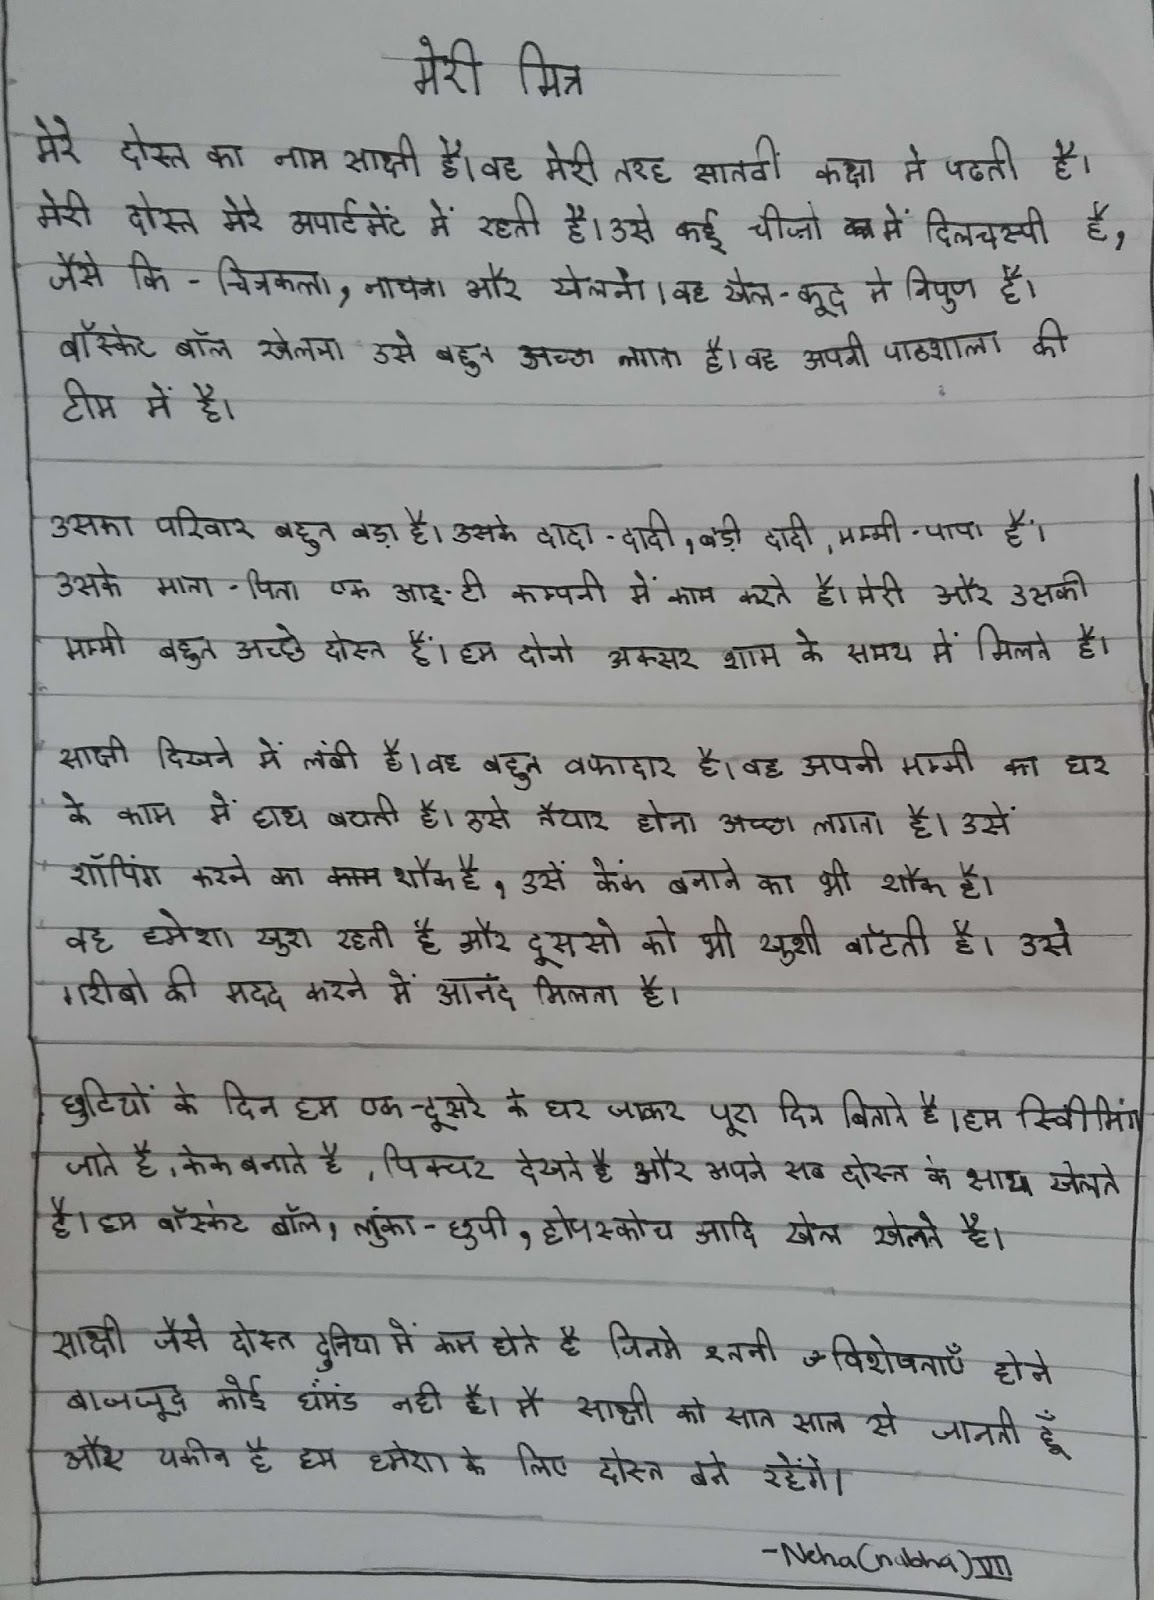 मेरी मित्र
मेरे दोस्त का नाम साक्षी है। वह मेरी तरह सातवी कक्षा मे पढती है।
मेरी दोस्त मेरे अपार्टमेंट में रहती है। उसे कई चीजो में दिलचस्पी है,
जैसे कि - चित्रकला, नाचना और खेलने। वह खेल-कूद मे निपुण है।
बॉस्केट बॉल खेलना उसे बहुत अच्छा लगता है। वह अपनी पाठशाला की
टीम में है।
उसका परिवार बहुत बड़ा है। उसके दादा - दादी, बड़ी दादी, मम्मी - पापा हैं।
उसके माता - पिता एक आइ-टी कम्पनी में काम करते है। मेरी और उसकी
मम्मी बहुत अच्छे दोस्त हैं। हम दोनो अक्सर शाम के समय में मिलते है।
साक्षी दिखने में लंबी है। वह बहुत वफादार है। वह अपनी मम्मी का घर
के काम में हाथ बटाती है। उसे तैयार होना अच्छा लगता है। उसें
शॉपिंग करने का शौक है, उसें केंक बनाने का भी शौक है।
वह हमेशा खुश रहती है और दूससो को भी खुशी बाँटती है। उसे
गरीबो की मदद करने में आनंद मिलता है।
छुटियों के दिन हम एक-दूसरे के घर जाकर पूरा दिन बिताते है। हम स्विीमिंग
जाते है, केक बनाते है, पिक्चर देखते है और अपने सब दोस्त के साथ खेलते
है। हम बॉस्केट बॉल, लुंका - छुपी, होपस्कोच आदि खेल खेलते है।
साक्षी जैसे दोस्त दुनिया में कम होते है जिनमे इतनी विशेषताएँ होने
बाजजूद कोई घंमंड नही है। मै साक्षी को सात साल से जानती हूँ
और यकीन है हम हमेशा के लिए दोस्त बने रहेंगे।
-Neha(nabha) VII